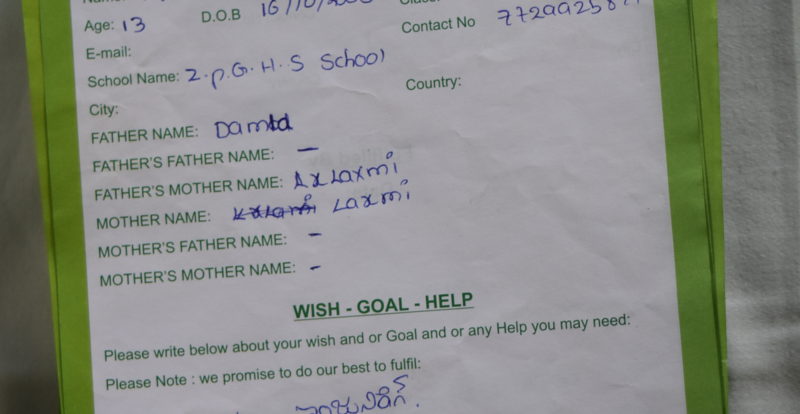 Age: 13 D.O.B 16/10/
Contact No
E-mail:
School Name: Z.p.G.H.S School
City: Country:
FATHER NAME:
FATHER'S FATHER NAME: -
FATHER'S MOTHER NAME: Laxmi
MOTHER NAME: Laxmi
MOTHER'S FATHER NAME: -
MOTHER'S MOTHER NAME: -
WISH - GOAL - HELP
Please write below about your wish and or Goal and or any Help you may need:
Please Note : we promise to do our best to fulfil: